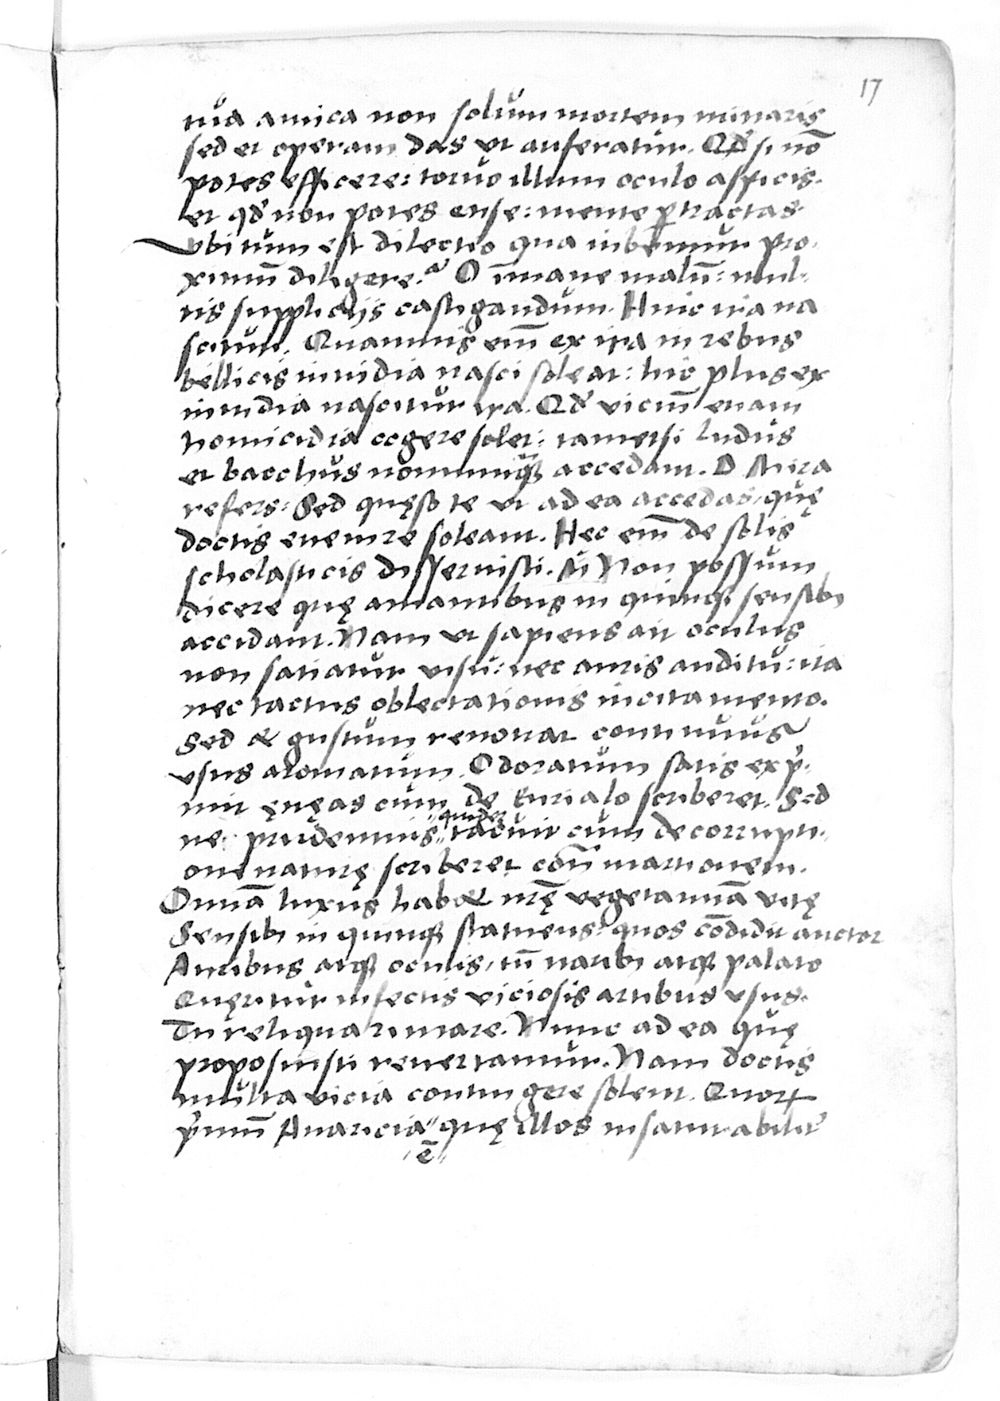 17
tua amica non solum mortem minaris
sed et operam das ut auferatur. Qđ si nõ
potes efficere: toruo illum oculo aspicis.
et qđ non potes ense: mente ꝑtractas.
Vbi tum est dilectio qua iubemur pro
ximũ diligere? O ĩmane malũ: mul-
tis supplicijs castigandum. Hinc ira na
scitur. Quamuis em̃ ex ira in rebus
bellicis inuidia nasci soleat: hic plus ex
inuidia nascitur ira. Qđ viciũ etiam
homicidia cogere solet: tametsi ludus
et bacchus nonnunqꝫ accedant. D Mira
refers: Sed quęso te ut ad ea accedas, quę
doctis euenire soleant. Hec em̃ de solis
scholasticis disseruisti. M Non possum
dicere quę amantibus in quinqꝫ sensibꝫ
accidant. Nam ut sapiens ait oculus
non satiatur visu: nec auris auditu: ita
nec tactus oblectationis incitamento.
Sed & gustum renouat continuus
vsus aromatum. Odoratum satis exp̃-
mit ęnęas cum de Eurialo scriberet. Sed
ne prudentius quidem tacuit cum de corrupti-
one naturę scriberet con̄ martionem.
Omnã luxus habet nr̃ę vegetamina vitę
Sensibꝫ in quinqꝫ statuens: quos cõdidit auctor
Auribus atqꝫ oculis, tũ naribꝫ atqꝫ palato
Quęritur infectis viciosis artibus vsus.
Tu reliqua rimare. Nunc ad ea quę
proposuisti reuertamur. Nam doctis
multa vicia contingere solent. Quoꝝ
p̃mũ Auaricia " quę illos insaturabilit̃
" ẽ "